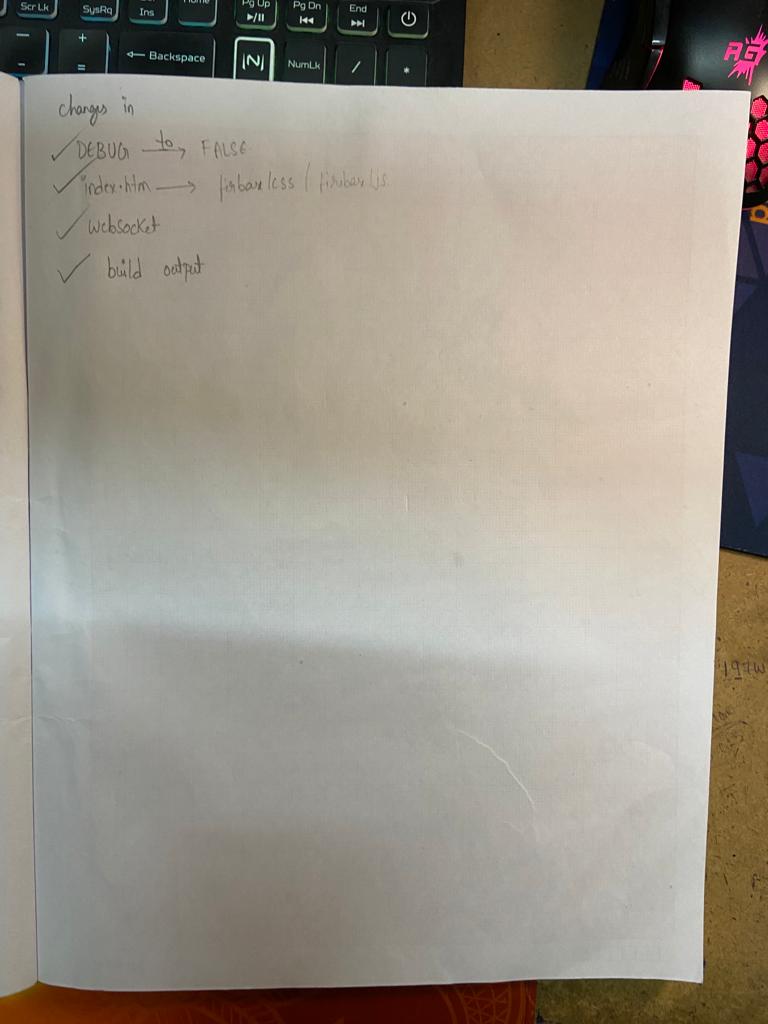 Scr Lk
SysRq
Ins
Pg Up
Pg Dn
End
Backspace
NumLk
/
*
changes in
✓ DEBUG to → FALSE
✓ index.htm → firbase/css / firebase/js
✓ websocket
✓ build output
197W